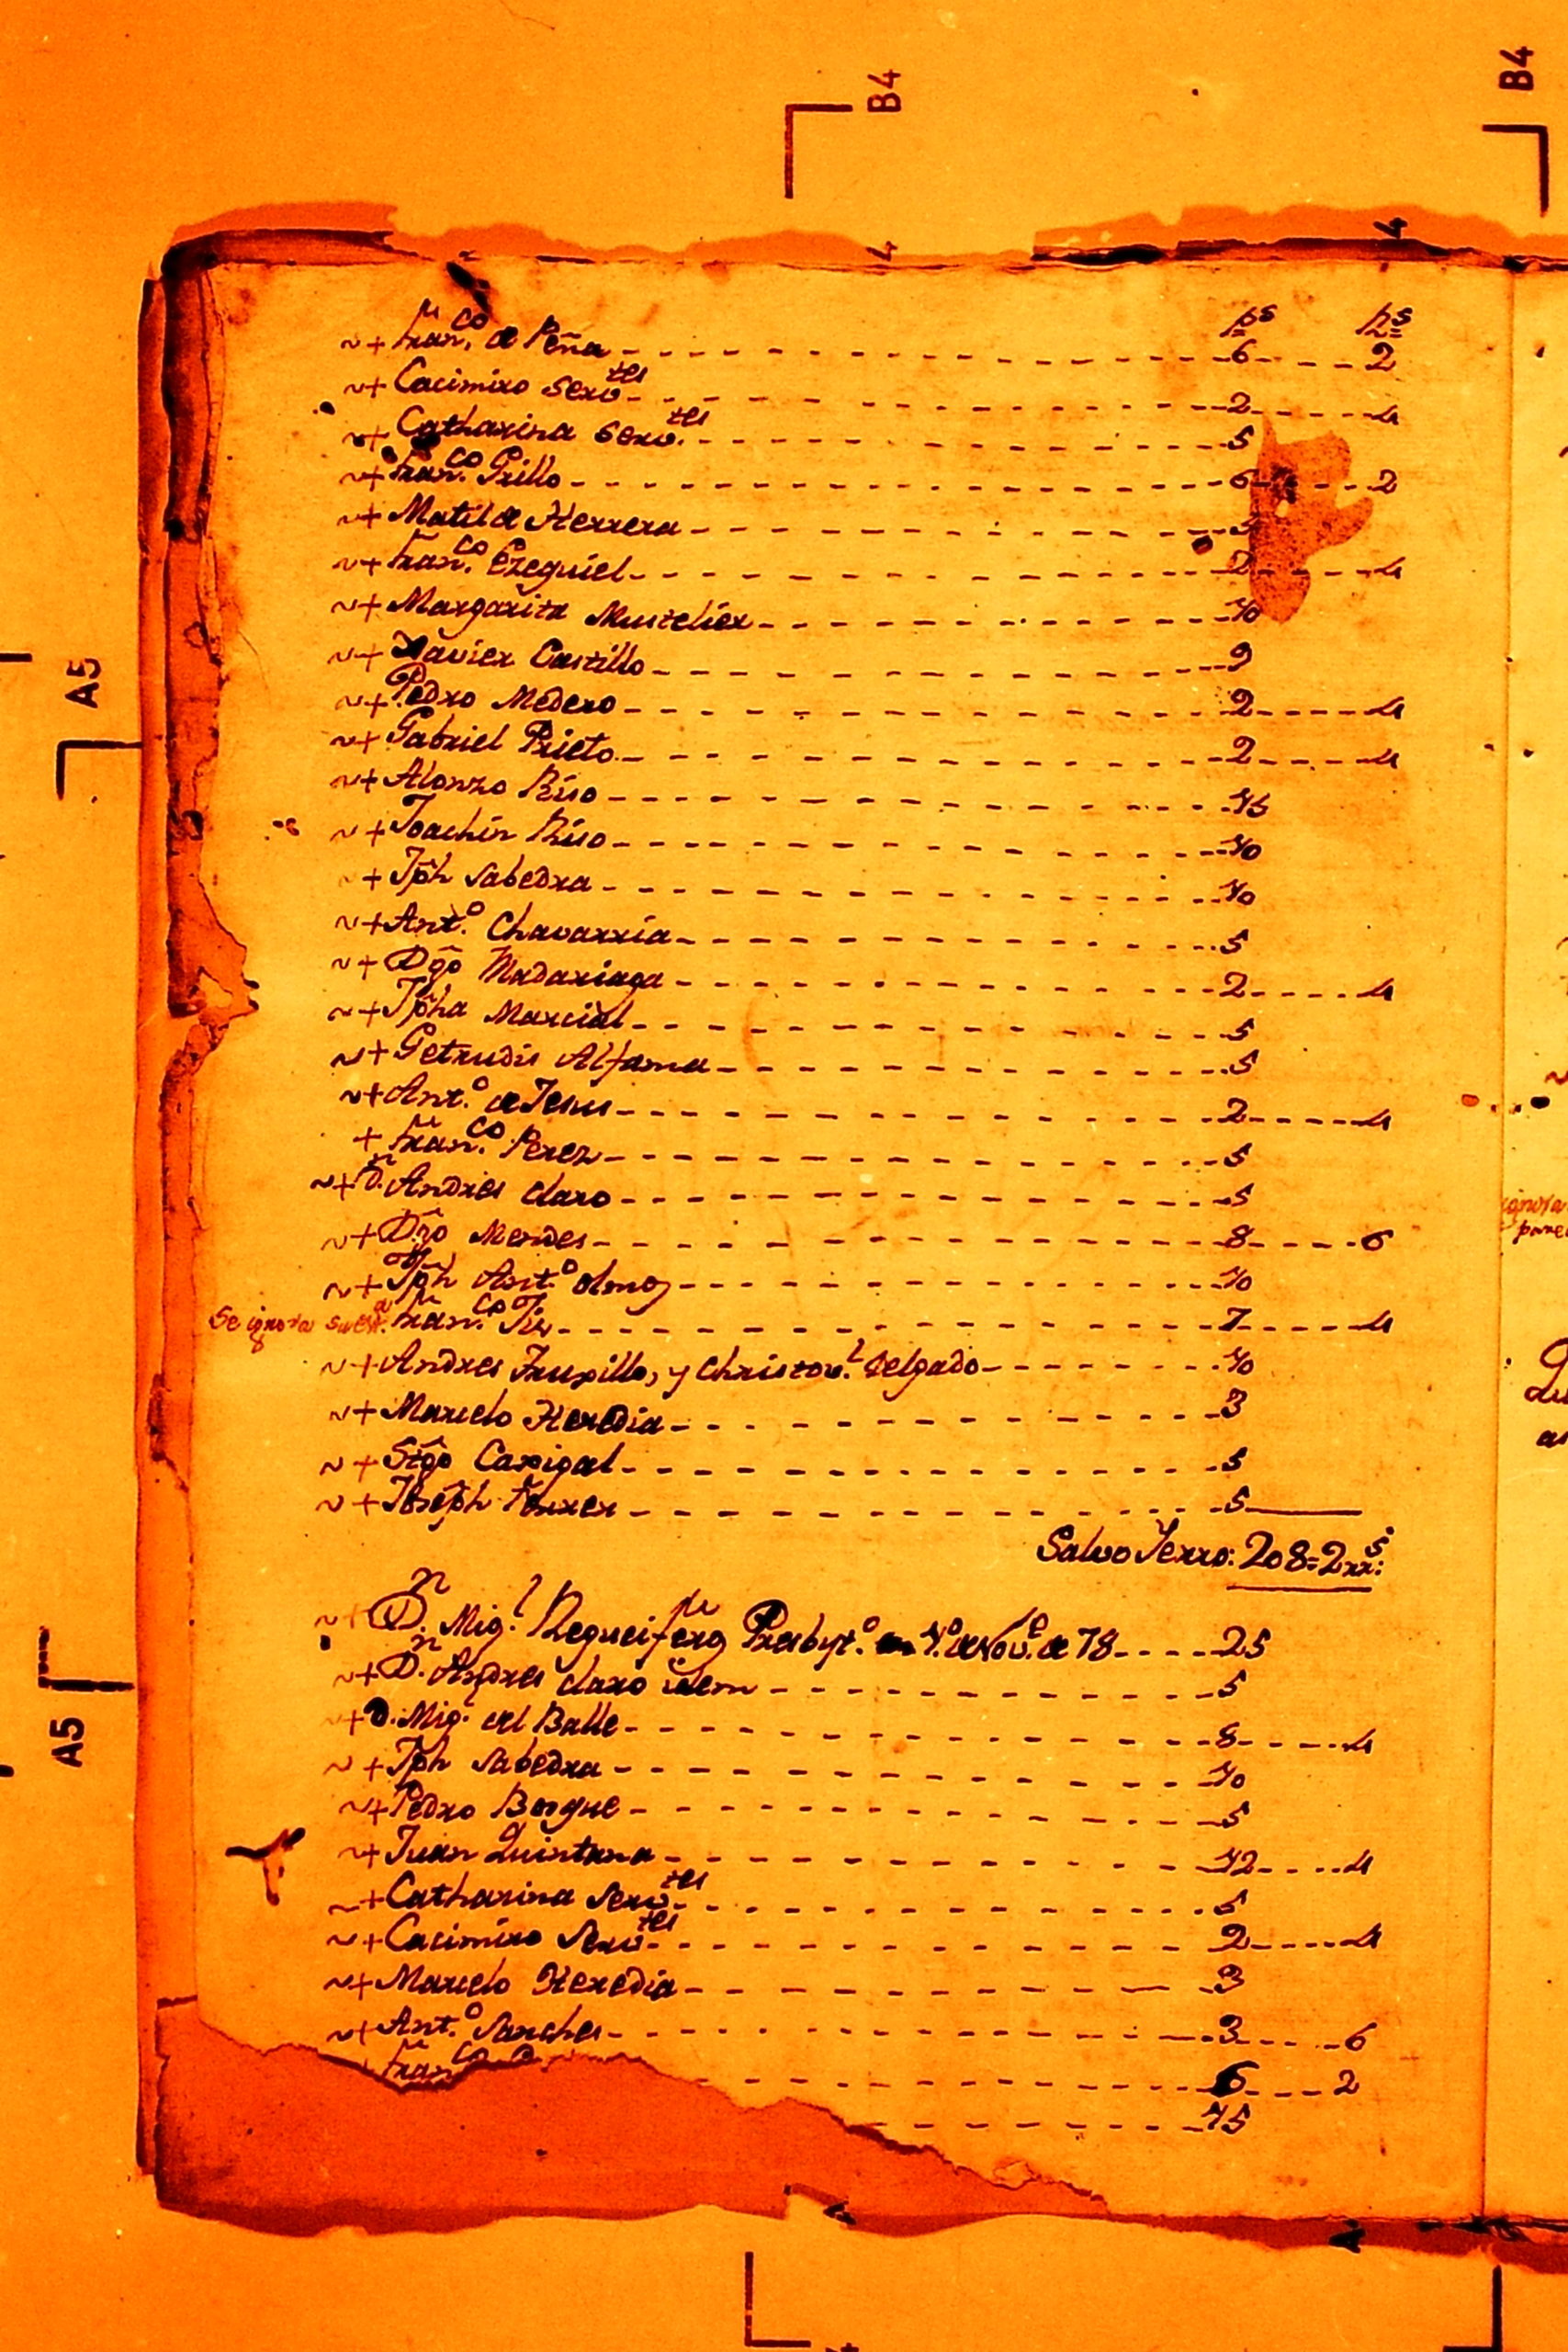 B4
B4
4
4
p.s r.s
~+ Fran.co de Peña 6 2
~+ Cacimiro serv.tes 2 4
~+ Catharina serv.tes 5
~+ Fran.co Grillo 6 2
~+ Matilde Herrera
~+ Fran.co Ezequiel 2 4
~+ Margarita Mustelier 10
~+ Xavier Castillo 9
~+ Pedro Medero 2 4
~+ Gabriel Prieto 2 4
A5
~+ Alonzo Riso
~+ Joachin Riso 10
~+ Jph Sabedra 10
~+ Ant.o Chavarria 5
~+ Dgo Madariaga 2 4
~+ Jpha Marcial 5
~+ Getrudis Alfama 5
~+ Ant.o de Jesus 2 4
+ Fran.co Perez 5
~+ D.n Andres claro 5
~+ Dgo Mendes 8 6
~+ Jph Ant.o olmo 10
Se ignora su est.a Fran.co 7 4
~+ Andres Truxillo, y Christov.l Delgado 10
~+ Marcelo Heredia 3
~+ Stgo Carigal 5
~+ Joseph Ferrer 5
Salvo Yerro: 208=2 rr.s
~+ D.n Mig.l Presbyt.o 1.o de Nov.e de 78 25
~+ D.n Andres claro idem 5
~+ D. Mig.l del Balle 8 4
A5
~+ Jph Sabedra 10
~+ Pedro Borgue 5
~+ Juan Quintana 12 4
~+ Catharina Serv.tes 5
~+ Cacimiro Serv.tes 2 4
~+ Marcelo Heredia 3
~+ Ant.o Sanches 3 6
Fran.co 6 2
15